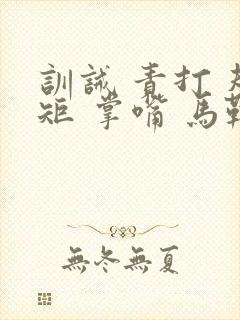 訓誡 責打 規
矩 掌嘴 馬鞭
無冬無夏